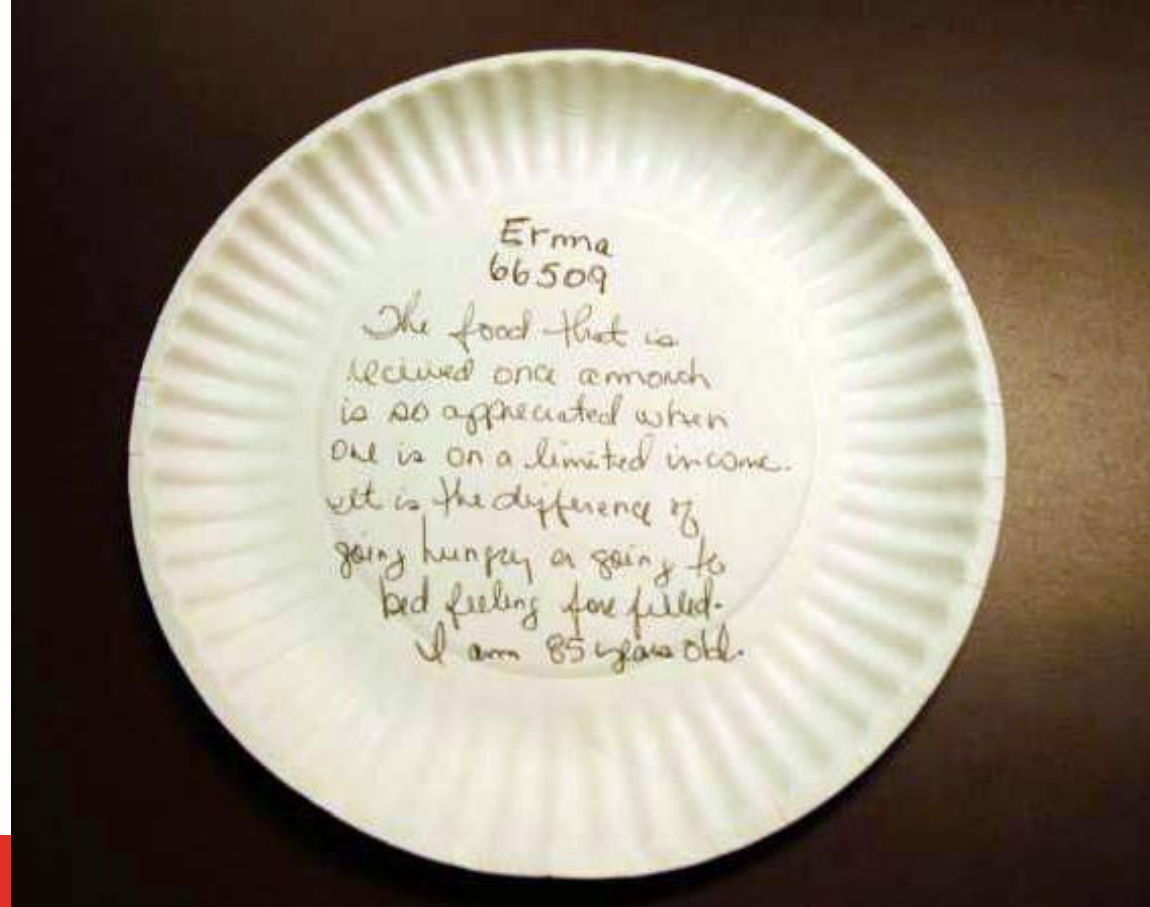 Erma
66509
The food that is
recieved once a month
is so appreciated when
one is on a limited income.
It is the difference of
going hungry or going to
bed feeling fore filled.
I am 85 years old.